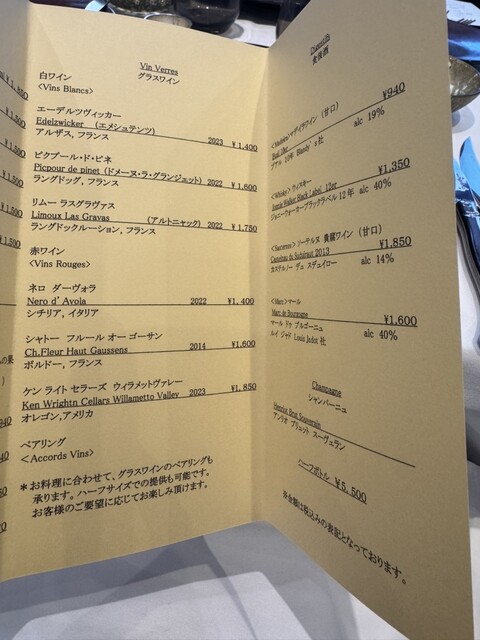 Vin Verres
グラスワイン
白ワイン
<Vins Blancs>
エーデルツヴィッカー
Edelzwicker (エメシュテンツ) 2023 ¥1,400
アルザス, フランス
ピクプール・ド・ピネ
Picpour de pinet (ドメーヌ・ラ・グランジェット) 2022 ¥1,600
ラングドッグ, フランス
リムー ラスグラヴァス
Limoux Las Gravas (アルトニャック) 2022 ¥1,750
ラングドックルーション, フランス
赤ワイン
<Vins Rouges>
ネロ ダーヴォラ
Nero d'Avola 2022 ¥1,400
シチリア, イタリア
シャトー フルール オー ゴーサン
Ch.Fleur Haut Gaussens 2014 ¥1,600
ボルドー, フランス
ケン ライト セラーズ ウィラメットヴァレー
Ken Wrightn Cellars Willametto Valley 2023 ¥1,850
オレゴン,アメリカ
ペアリング
<Accords Vins>
＊お料理に合わせて、グラスワインのペアリングも
承ります。ハーフサイズでの提供も可能です。
お客様のご要望に応じてお楽しみ頂けます。
Digestifs
食後酒
<Madeira>マデイラワイン (甘口)
Bual 10er ¥940
ブアル 10年 Blandy's社 alc 19%
<Whisky> ウィスキー
Jonnie Walker Black Label 12er ¥1,350
ジョニーウォーカーブラックラベル12年 alc 40%
<Sauternes> ソーテルヌ 貴腐ワイン (甘口)
Castelnau de Suduiraut 2013 ¥1,850
カステルノー デュ スデュイロー alc 14%
<Marc>マール
Marc de Bourgogne ¥1,600
マール ドゥ ブルゴーニュ alc 40%
ルイ ジャド Louis Jadot 社
Champagne
シャンパーニュ
Henriot Brut Souverain
アンリオ ブリュット スーヴェラン
ハーフボトル ¥5,500
※金額は税込みの表記となっております。